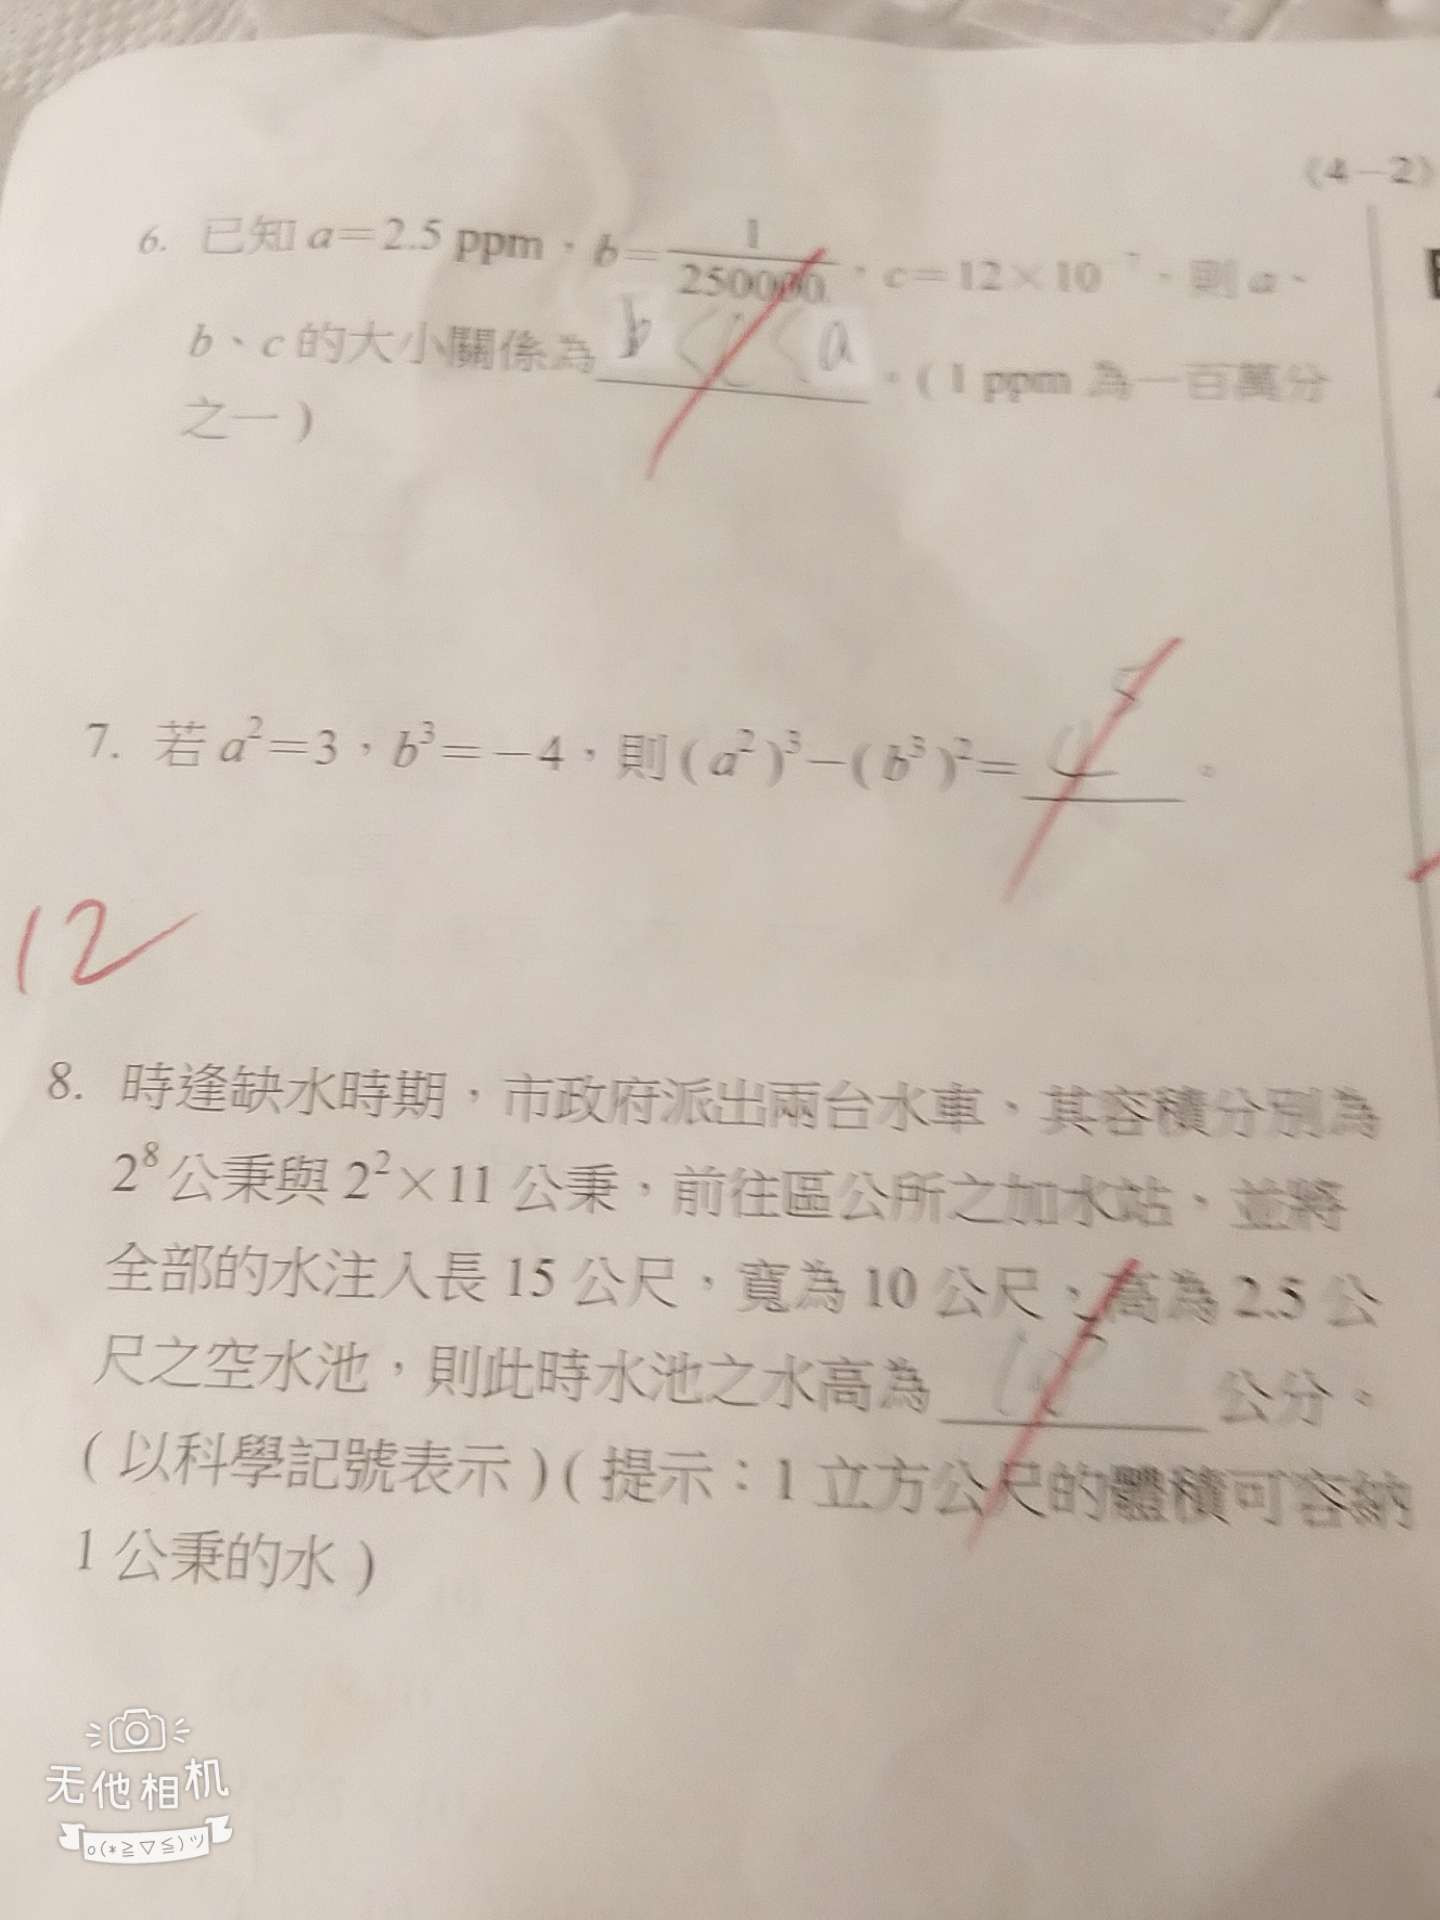 (4-2)
6. 已知 a=2.5 ppm，b=1/250000，c=12×10⁻⁷，則 a、
b、c 的大小關係為 b < c < a 。( 1 ppm 為一百萬分
之一 )
7. 若 a²=3，b³=-4，則 ( a² )³-( b³ )²= 。
12
8. 時逢缺水時期，市政府派出兩台水車，其容積分別為
2⁸ 公秉與 2²×11 公秉，前往區公所之加水站，並將
全部的水注入長 15 公尺，寬為 10 公尺，高為 2.5 公
尺之空水池，則此時水池之水高為 公分。
( 以科學記號表示 ) ( 提示：1 立方公尺的體積可容納
1 公秉的水 )
无他相机
o(*≧▽≦)ツ